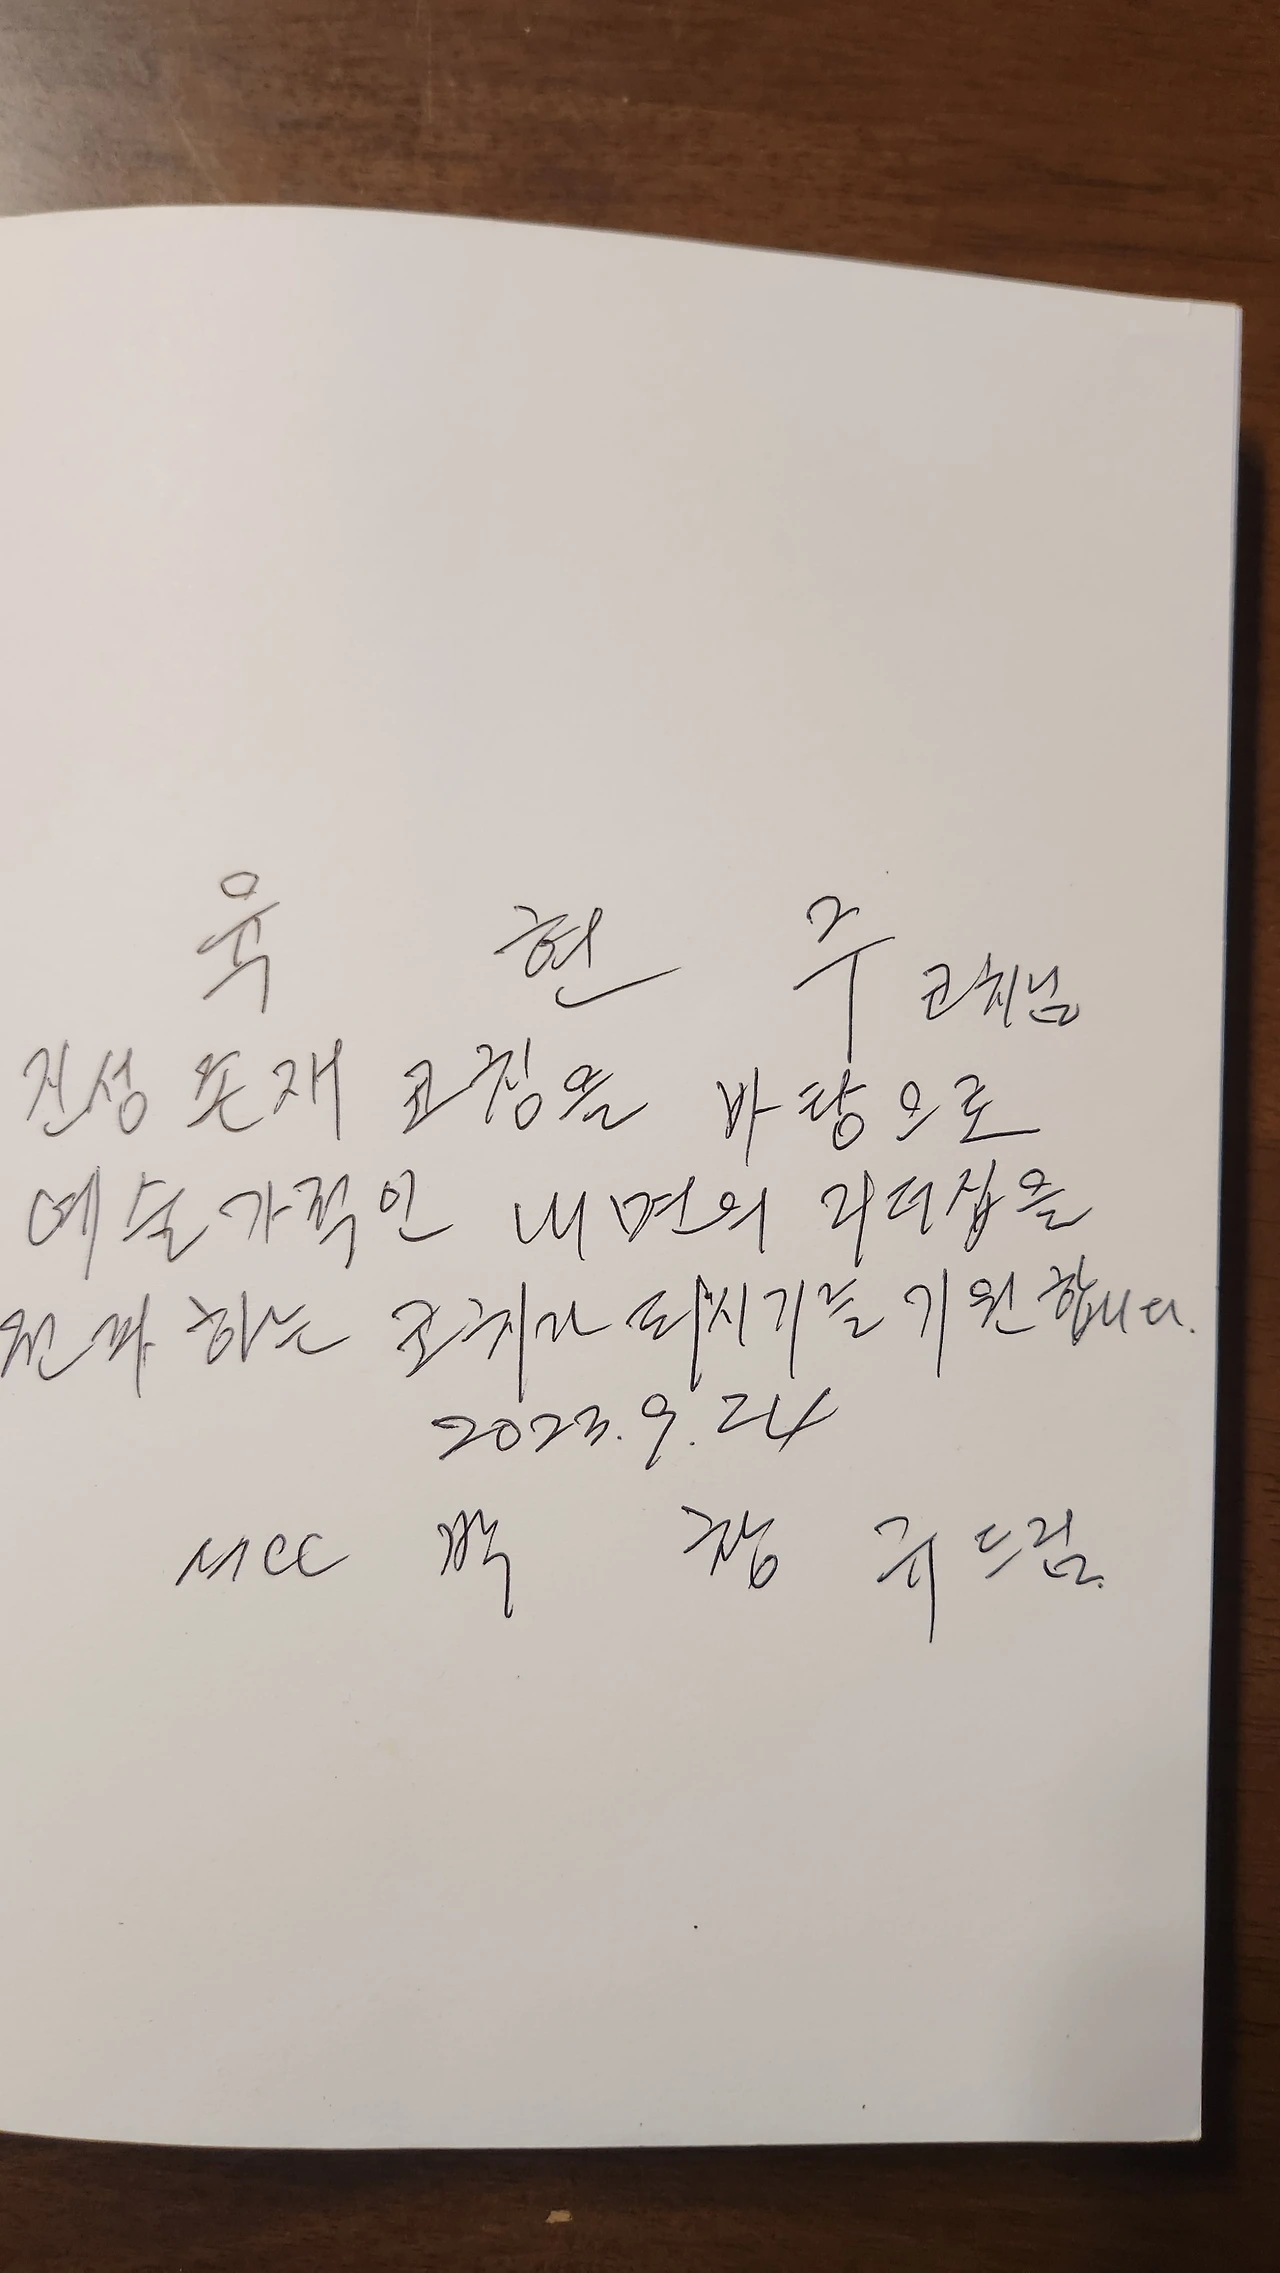 육 현 주 코치님
진성 존재 코칭을 바탕으로
예술가적인 내면의 리더십을
원파 하는 코치가 되시기를 기원합니다.
2023.9.24
MCC 박 창 규 드림.